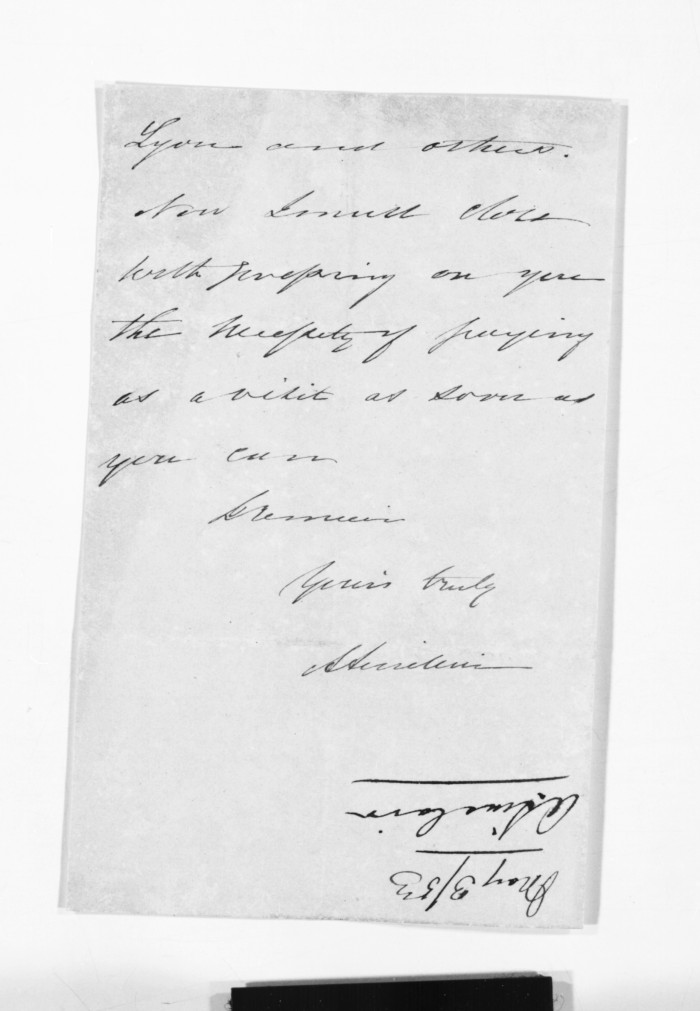 Lyon and others.
Now I must close
with pressing on you
the necessity of paying
us a visit as soon as
you can
I remain
Yours truly
A Sinclair
A. Sinclair
May 3/53